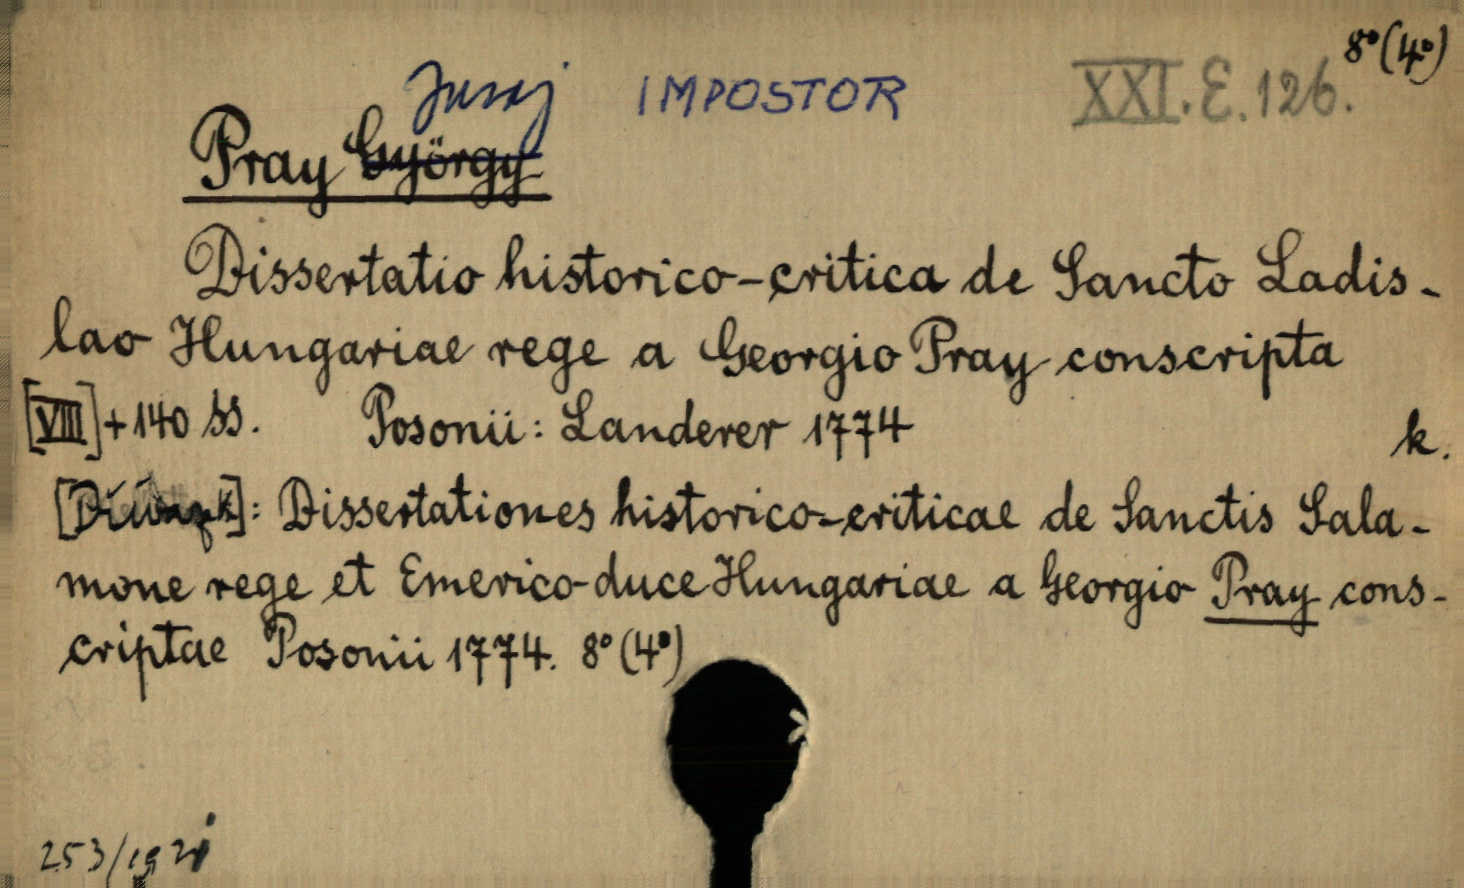 8°(4°)
Juraj IMPOSTOR XXI.E.126.
Pray György
Dissertatio historico-critica de Sancto Ladis-
lao Hungariae rege a Georgio Pray conscripta
[VIII]+140 SS. Posonii: Landerer 1774 k.
: Dissertationes historico-criticae de Sanctis Sala-
mone rege et Emerico duce Hungariae a Georgio Pray cons-
criptae Posonii 1774. 8°(4°)
253/1921